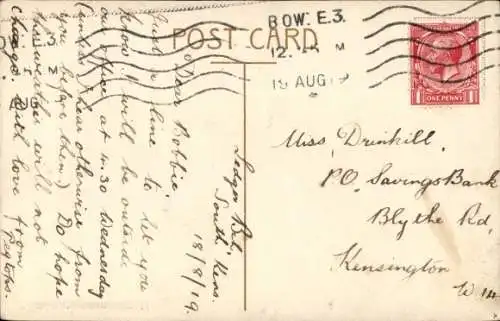 POST CARD
BOW. E.3.
12. M
19 AUG 19
ONE PENNY
Ledger Bd.
South Kens.
18/8/19.
Dear Bobbie,
Just a line to let you
know I will be outside
our office at 4.30 Wednesday
(unless I hear otherwise from
you before then). Do hope
the weather will not
change. With love from
Miss. Drinkill.
P.O. Savings Bank
Blythe Rd,
Kensington
W.14